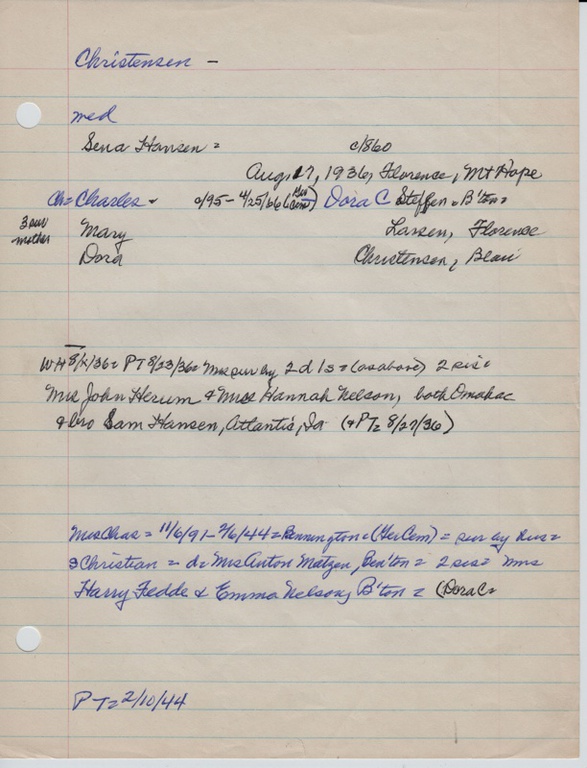 Christensen -
med
Sena Hansen = c/860
Aug 17, 1936, Florence, Mt Hope
Ch = Charles - 0/95 - 4/25/66 (Ger Cem) Dora C Steffen, B'ton =
3 our mother
Mary Larsen, Florence
Dora Christensen, Blair
WH 8/X/36 = PT 8/23/36 = Mrs sur by 2 d 1 s = (as above) 2 sis =
Mrs John Herum & Mrs Hannah Nelson, both Omaha
& bro Sam Hansen, Atlantis, Ia (& PT = 8/27/36)
Mrs Chas = 11/6/91 - 2/6/44 = Bennington = (Ger Cem) = sur by hus =
3 Christian = d = Mrs Anton Matzen, Ben'ton = 2 sis = Mrs
Harry Fedde & Emma Nelson, B'ton = (Dora C =
PT = 2/10/44